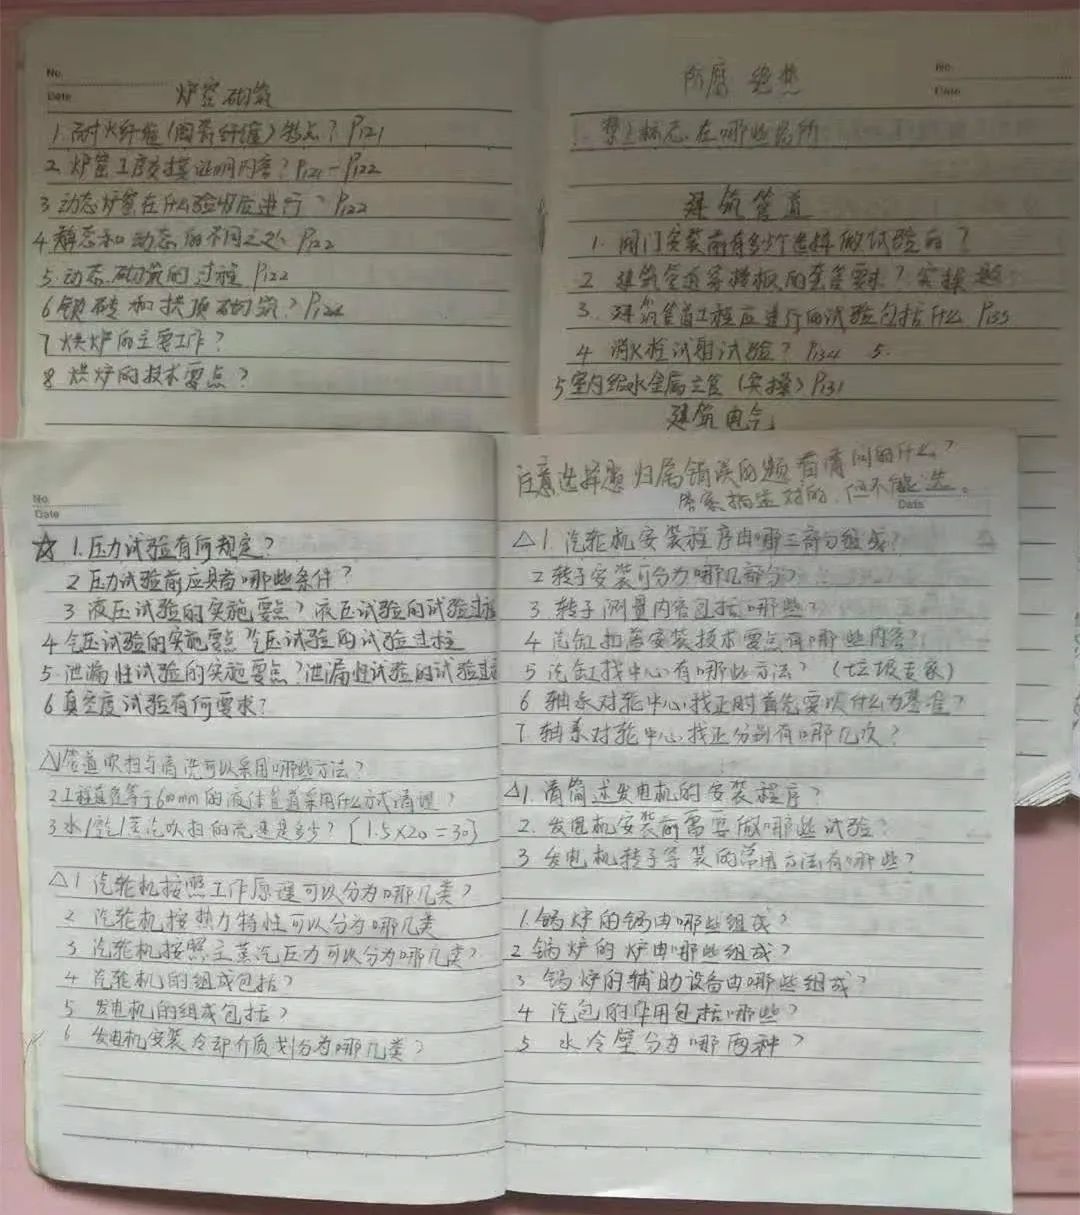 No.
Date
炉窑砌筑
1.耐火纤维(陶瓷纤维)特点? P121
2.炉窑工序交接证明内容? P121-P122
3动态炉窑在什么验收后进行? P122
4静态和动态的不同之处 P122
5.动态砌筑的过程 P122
6锁砖和拱顶砌筑?
7烘炉的主要工作?
8烘炉的技术要点?
No.
Date
防腐绝热
1.禁止标志在哪些场所
建筑管道
1.阀门安装前有多少个选择做试验的?
2 建筑管道穿楼板的套管要求?实操题
3.建筑管道工程应进行的试验包括什么 P135
4 消火栓试射试验? P134 5.
5室内给水金属立管(实操) P131
建筑电气
No.
Date
☆1.压力试验有何规定?
2压力试验前应具备哪些条件?
3液压试验的实施要点?液压试验的试验过程
4气压试验的实施要点?气压试验的试验过程
5.泄漏性试验的实施要点?泄漏性试验的试验过
6真空度试验有何要求?
△1管道吹扫与清洗可以采用哪些方法?
2工程直径等于600mm的液体管道采用什么方式清理?
3水/空气/蒸汽吹扫的流速是多少?[1.5×20=30]
△1汽轮机按照工作原理可以分为哪几类?
2 汽轮机按热力特性可以分为哪几类
3 汽轮机按照主蒸汽压力可以分为哪几类?
4 汽轮机的组成包括?
5 发电机的组成包括?
6 发电机安装冷却介质划分为哪几类?
注意选择题归属错误的题 看清问的什么?
答案描述对的,但不能选。
Data
△1.汽轮机安装程序由哪三部分组成?
2转子安装可分为哪几部分?
3.转子测量内容包括哪些?
4汽缸扣盖安装技术要点有哪些内容?
5汽缸找中心有哪些方法?(垃圾专家)
6轴系对轮中心找正时首先要以什么为基准?
7轴系对轮中心找正分别有哪几次?
△1.请简述发电机的安装程序?
2.发电机安装前需要做哪些试验?
3发电机转子穿装的常用方法有哪些?
1.锅炉的锅由哪些组成?
2锅炉的炉由哪些组成?
3锅炉的辅助设备由哪些组成?
4汽包的作用包括哪些?
5 水冷壁分为哪两种?